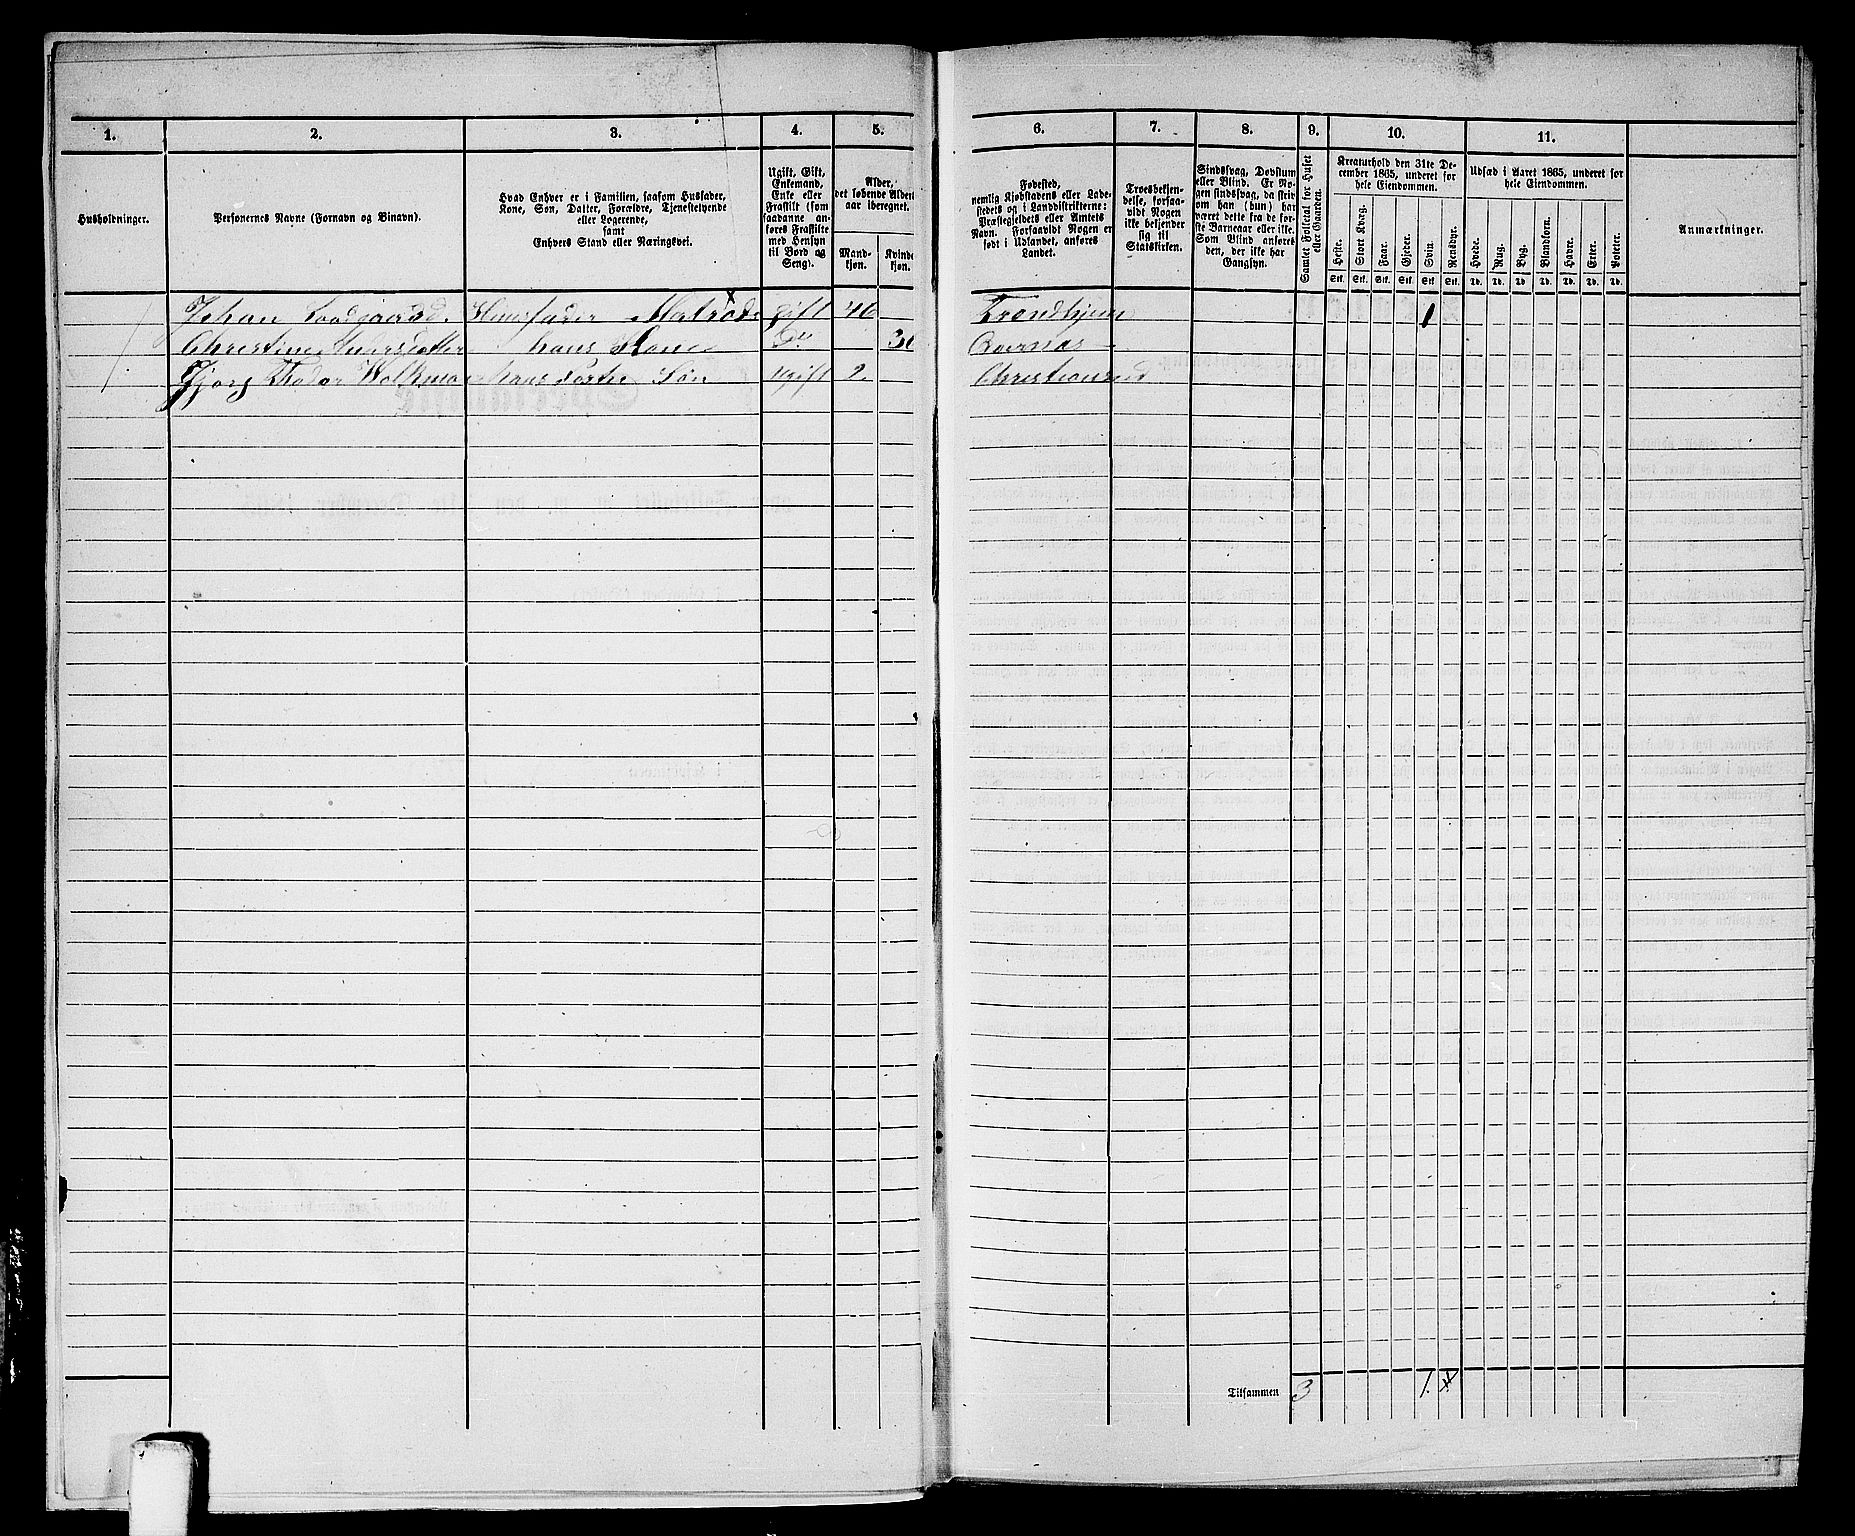 1. 2. 3. 4. 5.
Husholdninger.
Personernes Navne (Fornavn og Binavn).
Hvad Enhver er i Familien, saasom Husfader,
Kone, Søn, Datter, Forældre, Tjenestetyende
eller Logerende,
samt
Enhvers Stand eller Næringsvei.
Ugift, Gift,
Enkemand,
Enke eller
Fraskilt (som
saadanne an-
føres Fraskilte
med Hensyn
til Bord og
Seng).
Alder,
det løbende Alders-
aar iberegnet.
Mand-
kjøn.
Kvinde
kjøn.
Johan Husfader Matros gift 46
Christine hans Kone
Theodor hans Søn ugift 2.
6. 7. 8. 9. 10. 11.
Fødested,
nemlig Kjøbstadens eller Lade-
stedets og i Landdistrikterne:
Præstegjeldets eller Amtets
Navn. Forsaavidt Nogen er
født i Udlandet, anføres
Landet.
Troesbekjen-
delse, forsaa-
vidt Nogen
ikke bekjender
sig til
Statskirken.
Sindssvag, Døvstum
eller Blind. Er No-
gen sindssvag, da skri-
ves om han (hun) har
været dette fra de før-
ste Barneaar eller ikke.
Som Blind anføres
den, der ikke har
Gangsyn.
Samlet Folketal for Huset
eller Gaarden.
Kreaturhold den 31te De-
cember 1865, underet for
hele Eiendommen.
Heste. Stort Kvæg. Faar. Gjeder. Svin. Rensdyr.
Stk. Stk. Stk. Stk. Stk. Stk.
Udsæd i Aaret 1865, underet for
hele Eiendommen.
Hvede. Rug. Byg. Blandkorn. Havre. Erter. Poteter.
Td. Td. Td. Td. Td. Td. Td.
Anmærkninger.
Trondhjem 1
Christiansund
Tilsammen 3 1.